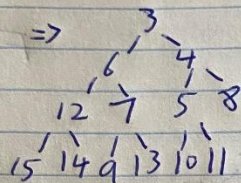 ⇒ 3
6 4
12 7 5 8
15 14 9 13 10 11